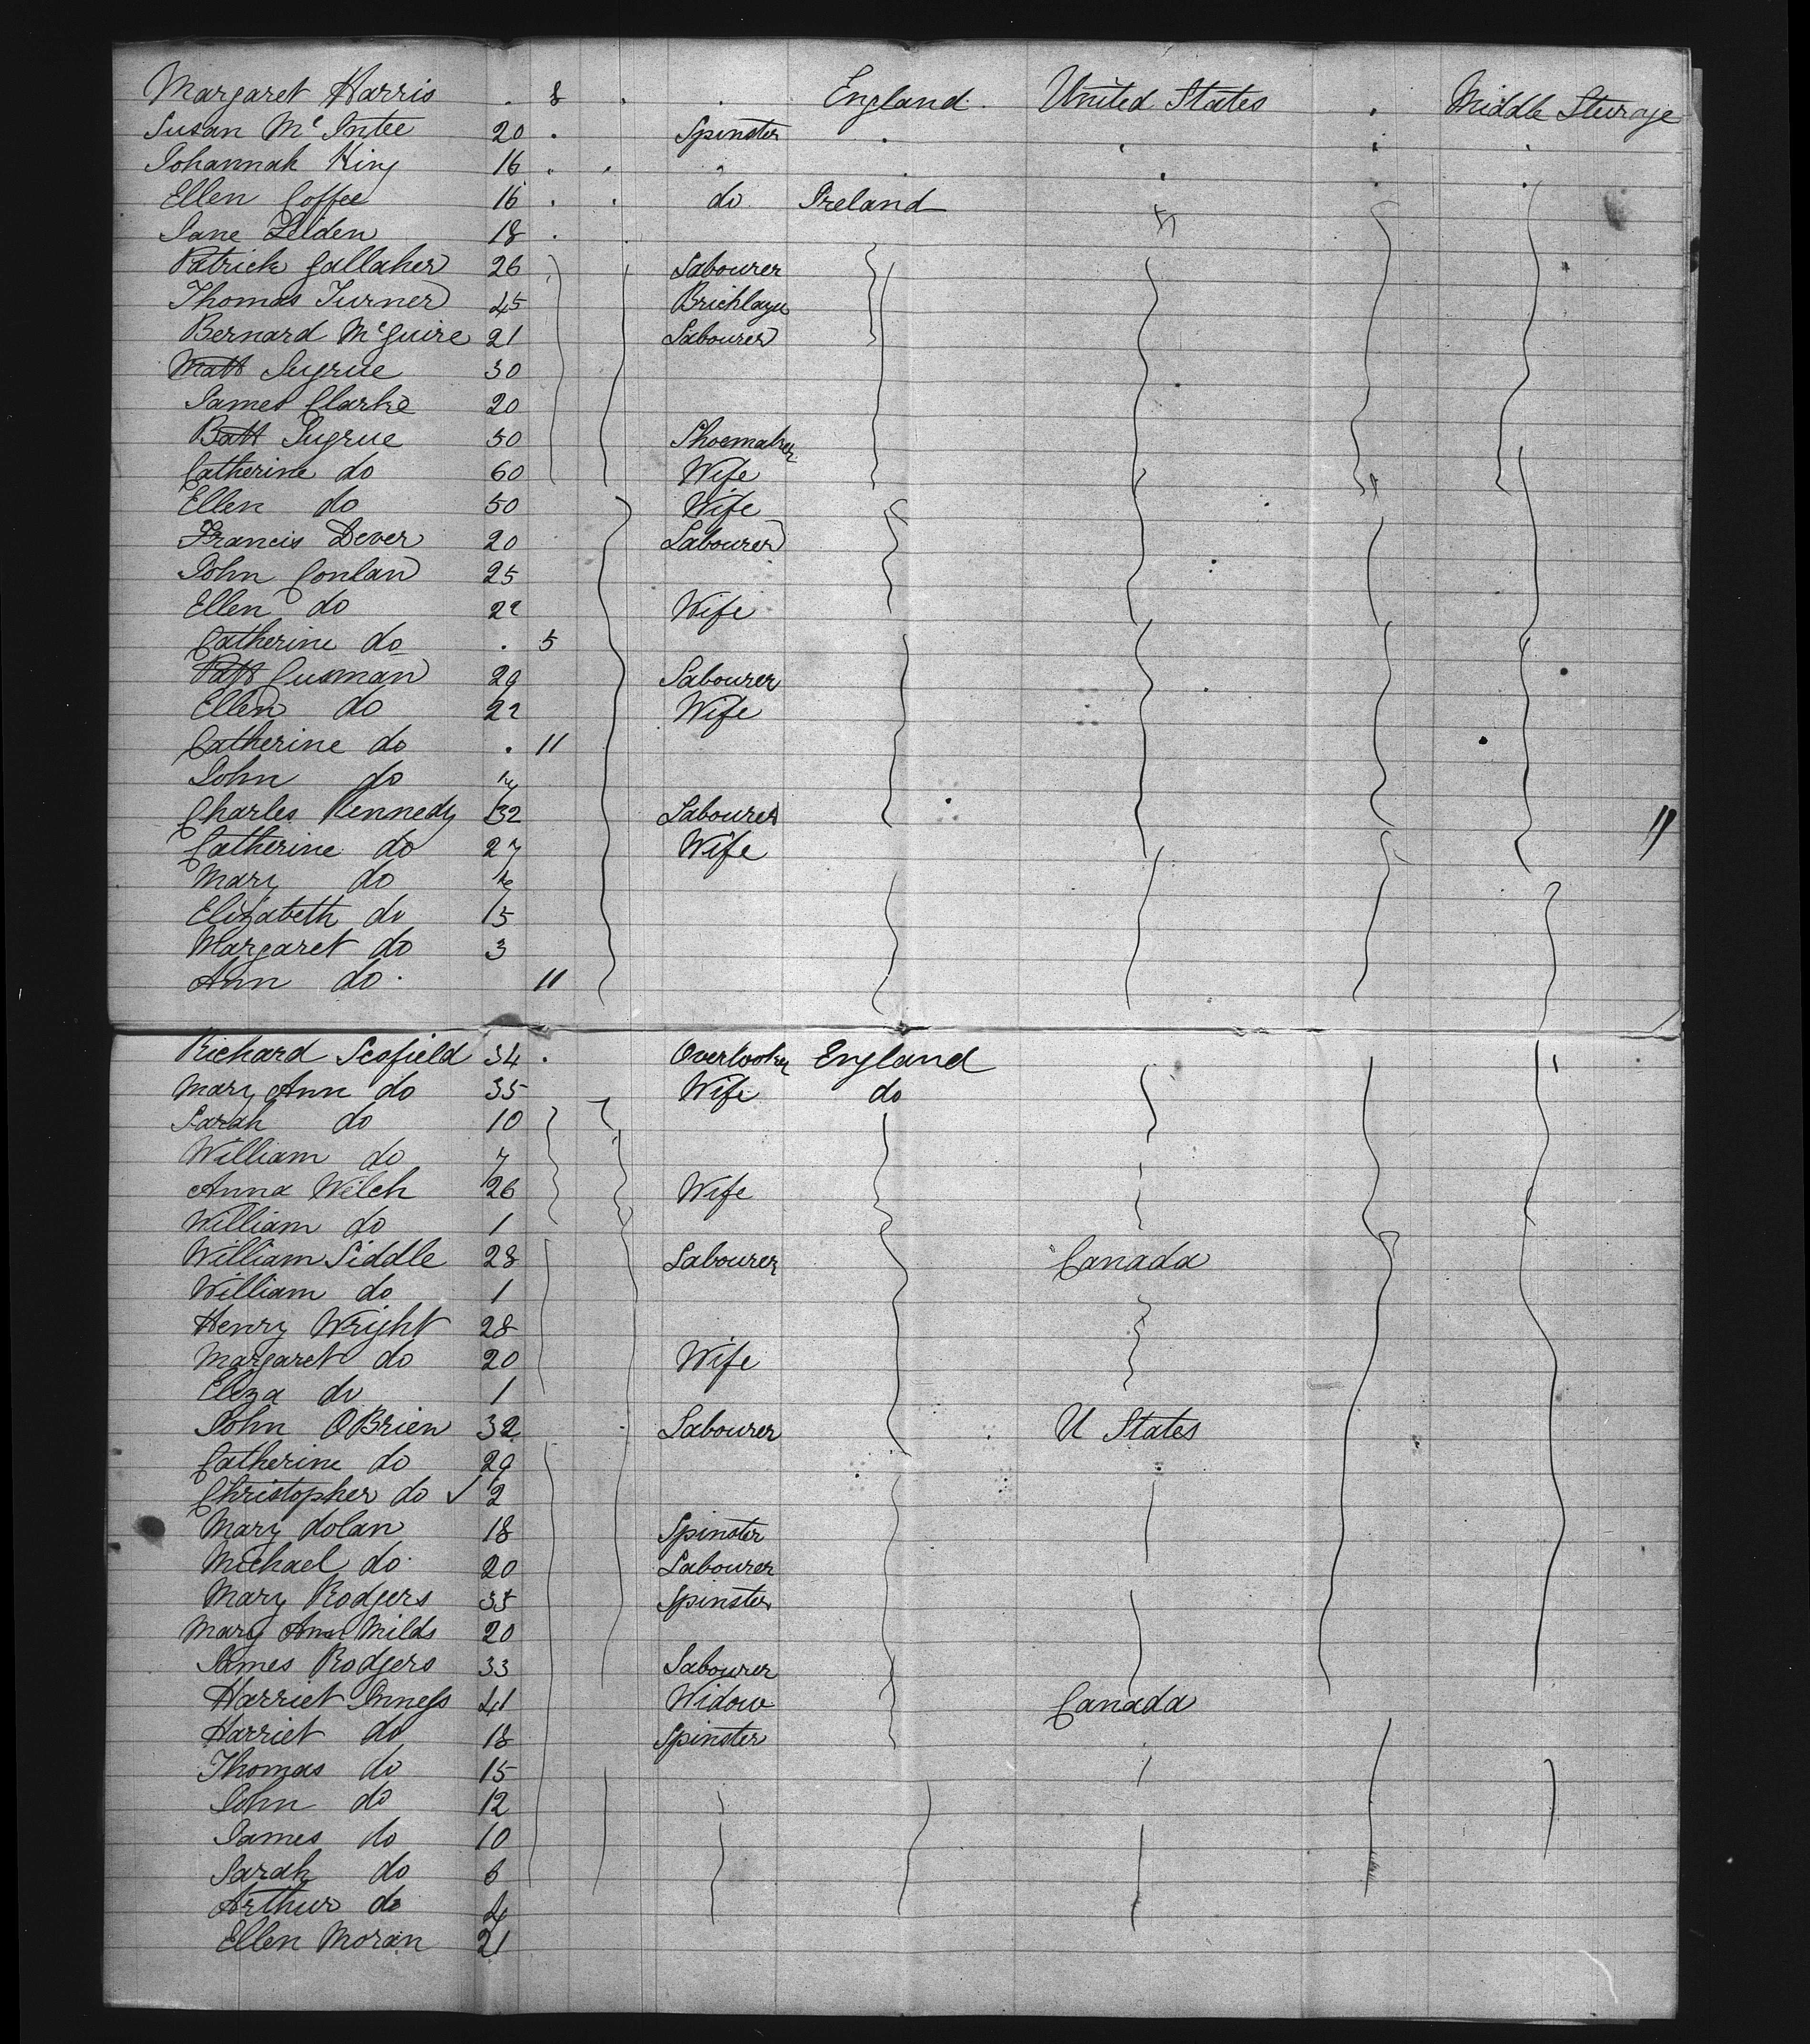 Margaret Harris . 8 . . England. United States . Middle Steerage
Susan McIntee 20 . Spinster
Johannah King 16
Ellen Coffee 16 . . do Ireland
Jane Leiden 18
Patrick Gallaher 26 Labourer
Thomas Turner 45 Bricklayer
Bernard McGuire 21 Labourer
Matt Sugrue 30
James Clarke 20
Batt Sugrue 50 Shoemaker
Catherine do 60 Wife
Ellen do 50 Wife
Francis Dever 20 Labourer
John Conlan 25
Ellen do 22 Wife
Catherine do . 5
Patt Cusman 29 Labourer
Ellen do 22 Wife
Catherine do . 11
John do
Charles Kennedy 32 Labourer 11
Catherine do 27 Wife
Mary do
Elizabeth do 5
Margaret do 3
Ann do. 11
Richard Scofield 34 . Overlooker England
Mary Ann do 35 Wife do
Sarah do 10
William do 7
Anna Welch 26 Wife
William do 1
William Siddle 28 Labourer Canada
William do 1
Henry Wright 28
Margaret do 20 Wife
Eliza do 1
John OBrien 32 Labourer U States
Catherine do 29
Christopher do ✓ 2
Mary Dolan 18 Spinster
Michael do. 20 Labourer
Mary Rodgers 35 Spinster
Mary Ann Milds 20
James Rodgers 33 Labourer
Harriet Inness 41 Widow Canada
Harriet do 18 Spinster
Thomas do 15
John do 12
James do 10
Sarah do 6
Arthur do 4
Ellen Moran 21